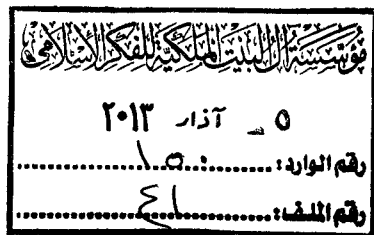 مؤسسة آل البيت الملكية للفكر الإسلامي
٥ - آذار ٢٠١٣
رقم الوارد: ١٥٠
رقم الملف: ٤١